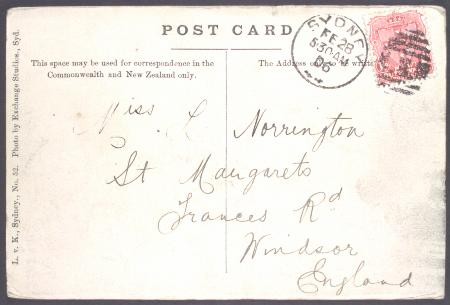 POST CARD
This space may be used for correspondence in the
Commonwealth and New Zealand only.
The Address only to be written
SYDNEY
FE 28
5 30 AM
06
Miss L Norrington
St Margarets
Frances Rd
Windsor
England
L. v. K., Sydney, No. 52. Photo by Exchange Studios, Syd.